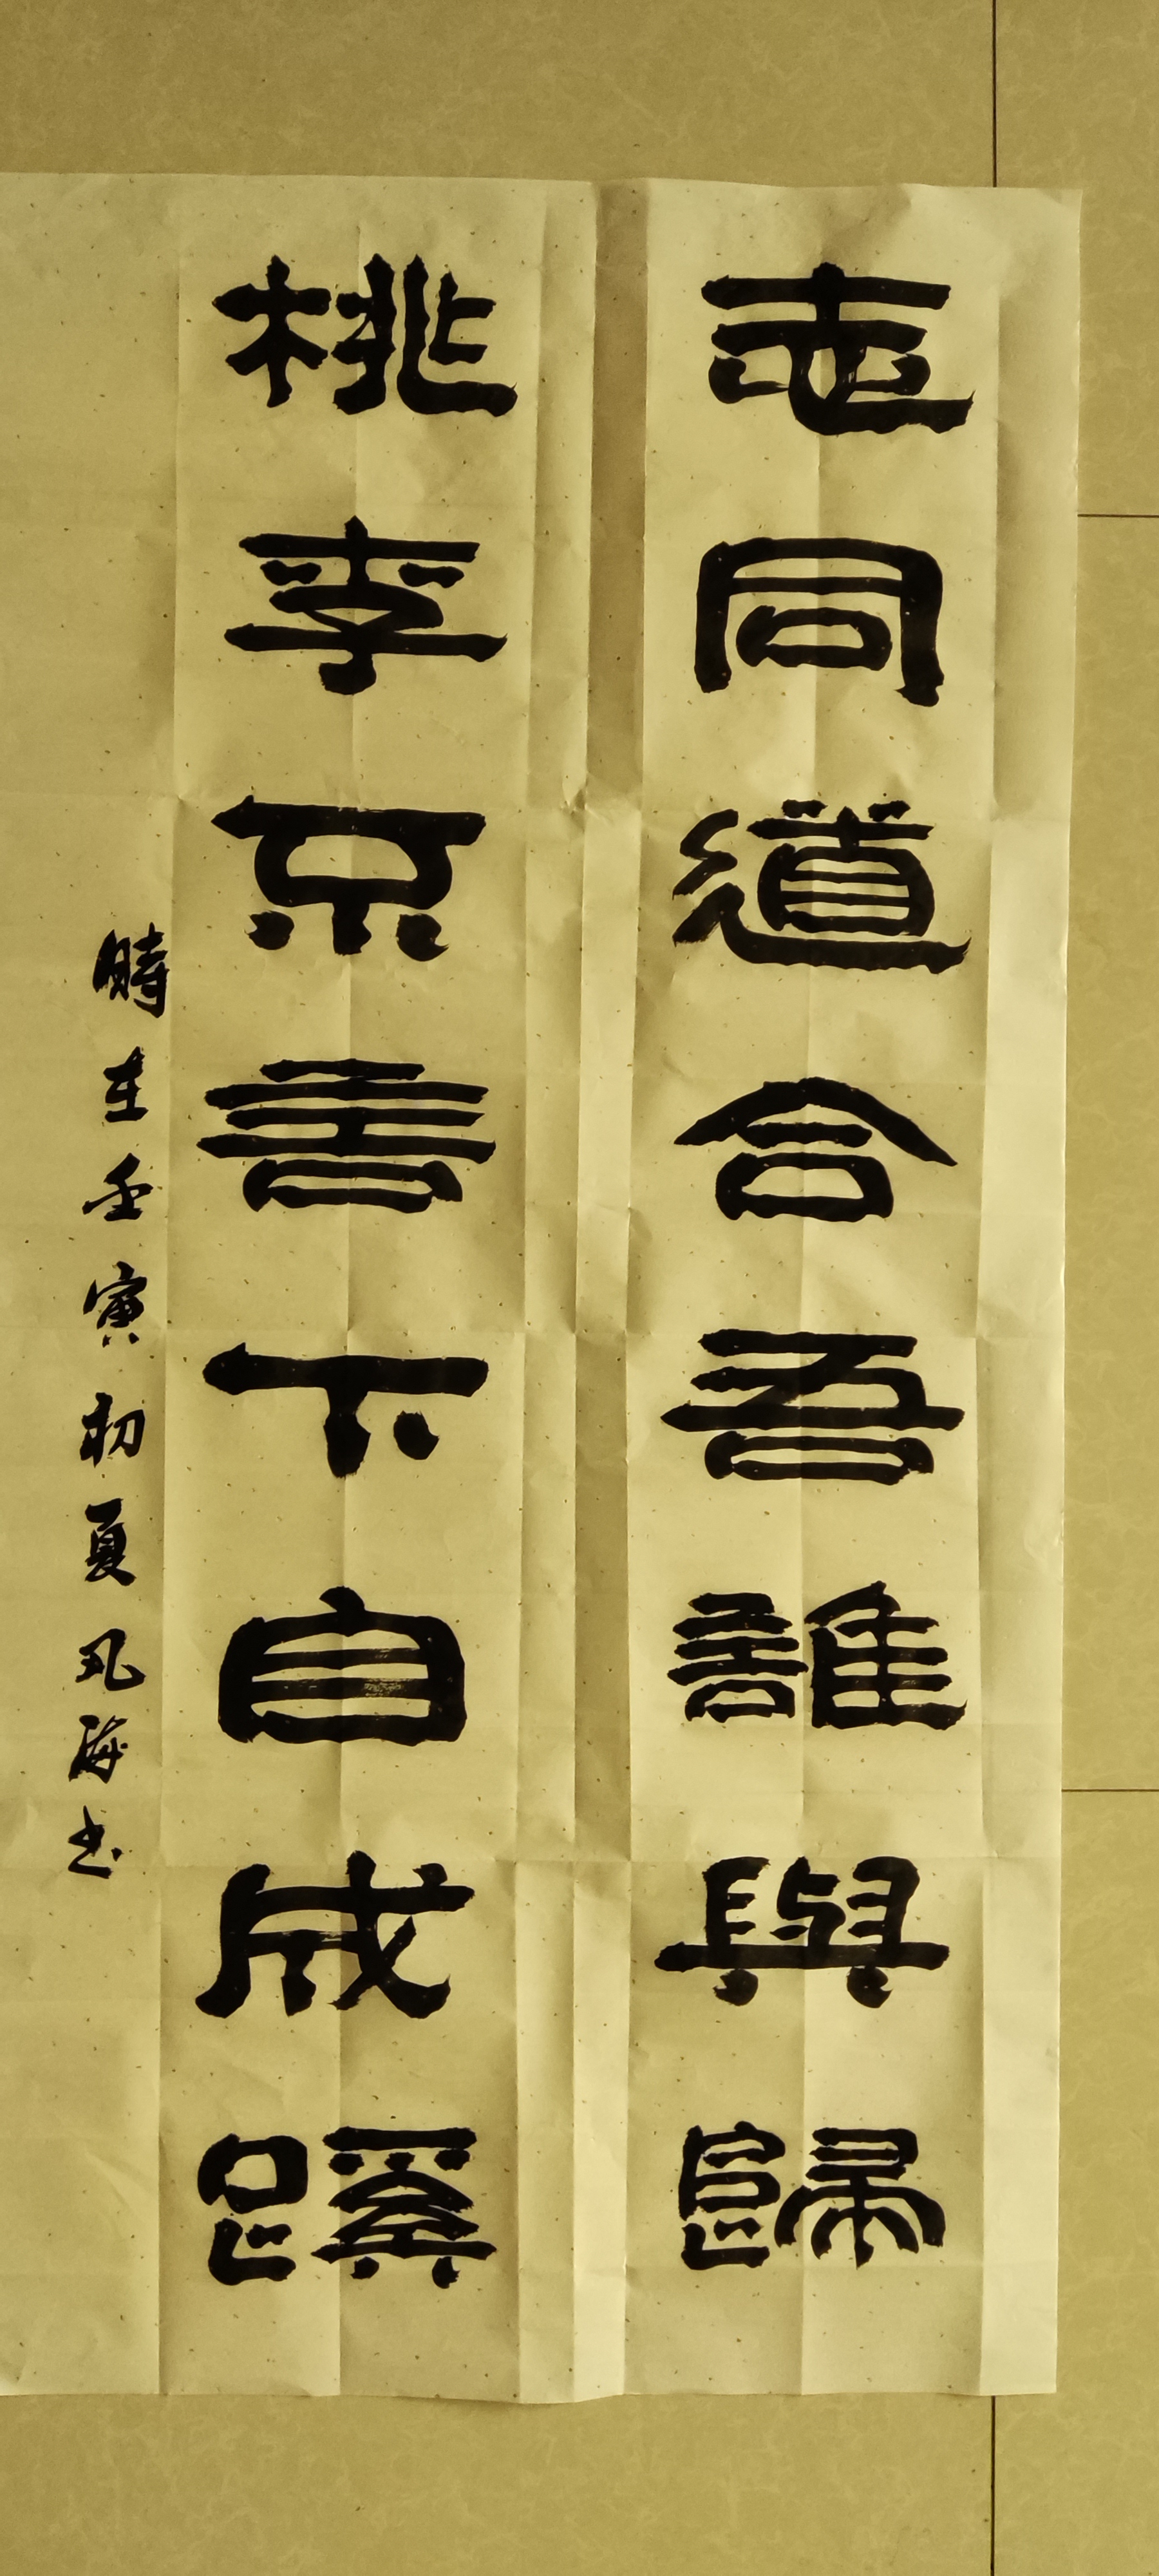 志同道合吾誰與歸
桃李不言下自成蹊
時在壬寅初夏凡海书